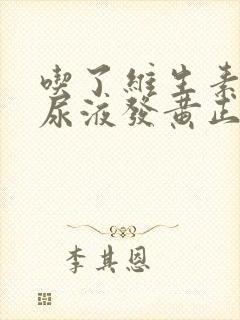 喫了維生素
尿液發黃正
李其恩